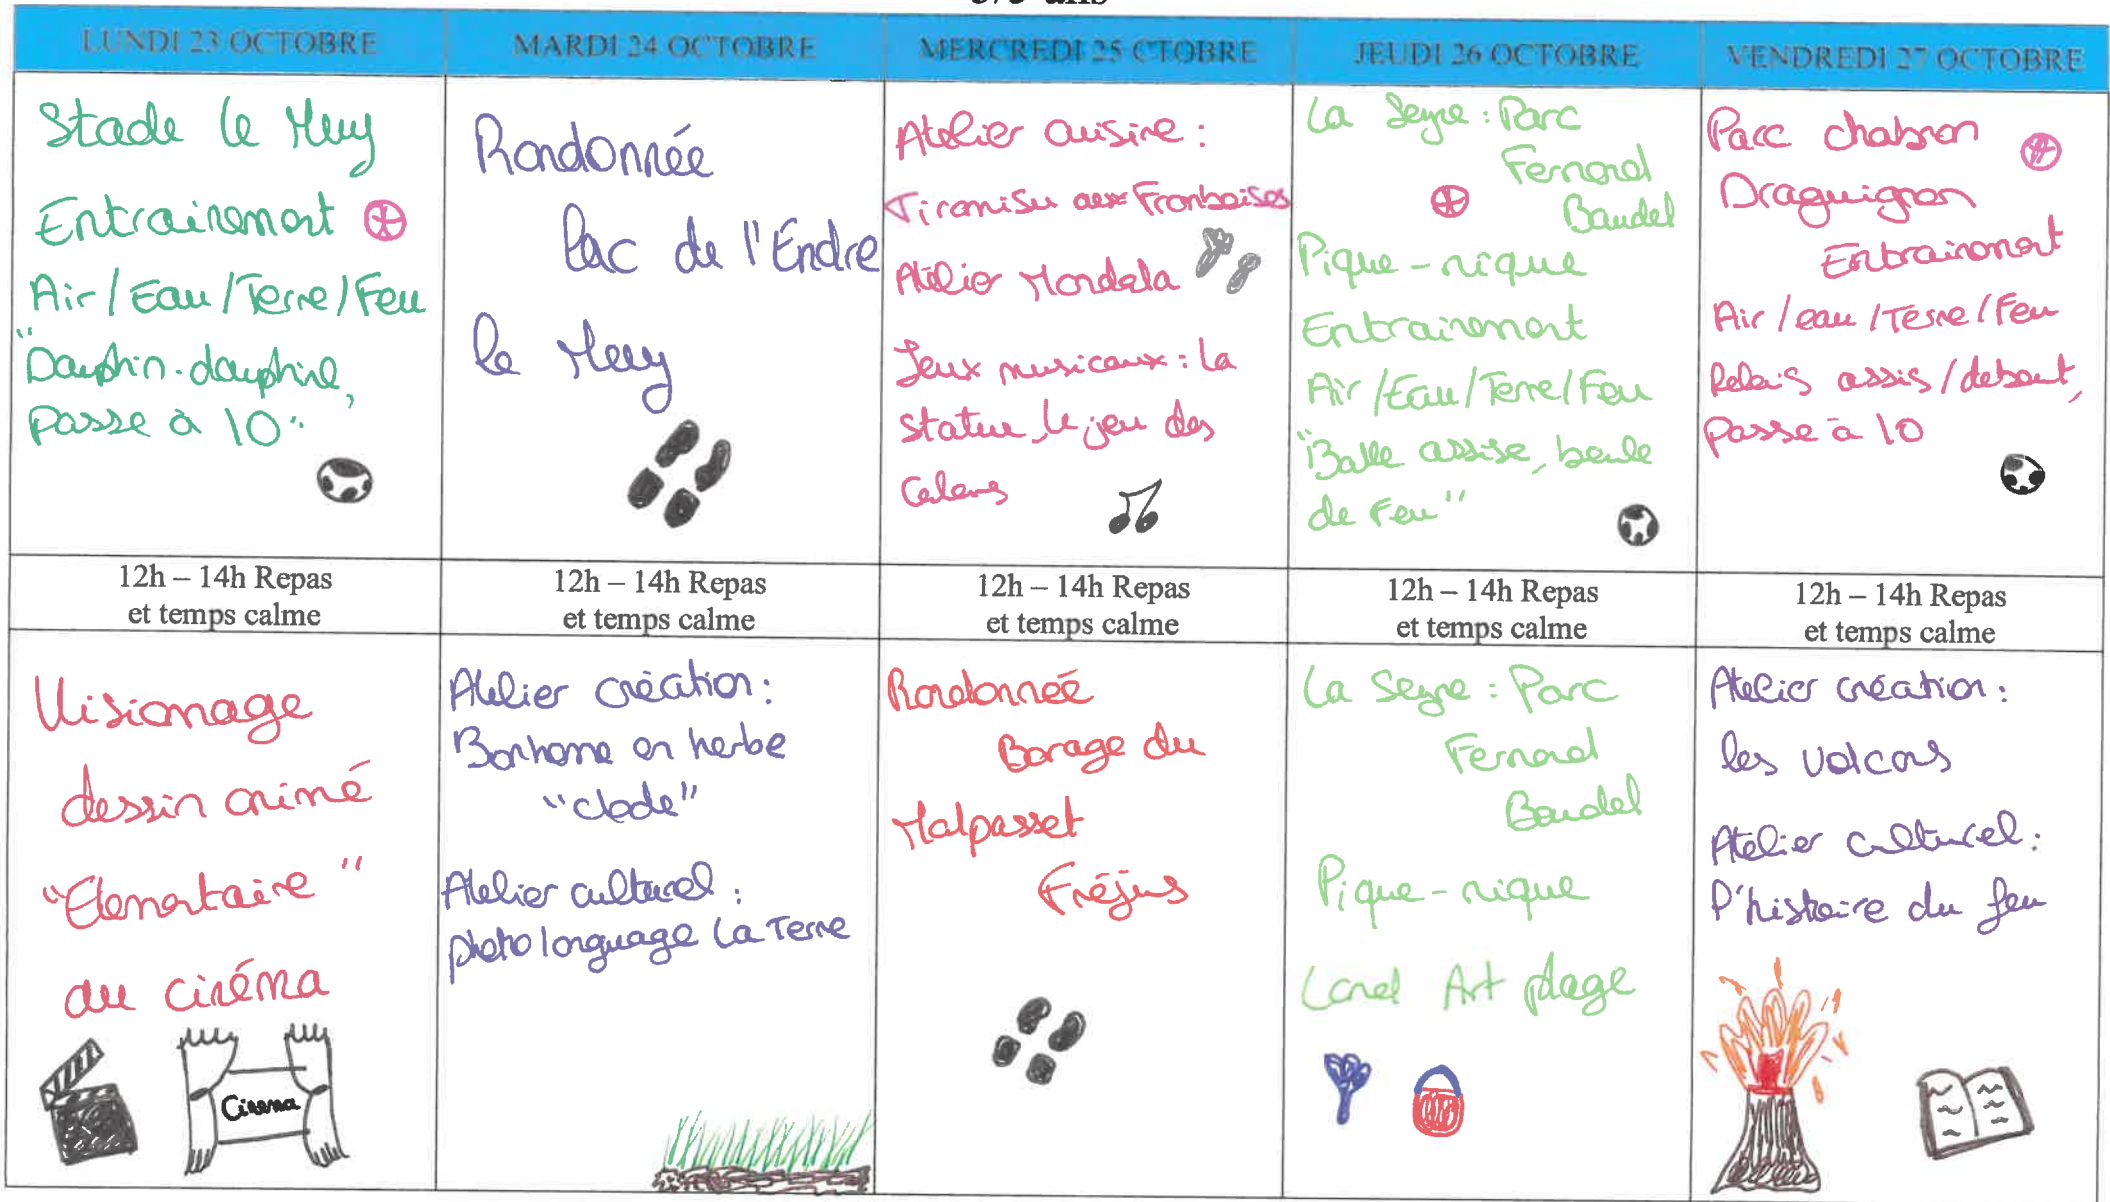 LUNDI 23 OCTOBRE
MARDI 24 OCTOBRE
MERCREDI 25 CTOBRE
JEUDI 26 OCTOBRE
VENDREDI 27 OCTOBRE
Stade le Muy
Entrainement
Air/Eau/Terre/Feu
"Dauphin-dauphine,
Passe à 10"
Randonnée
Lac de l'Endre
le Muy
Atelier cuisine :
Tiramisu aux Framboises
Atelier Mandala
Jeux musicaux : la
statue, le jeu des
La Seyne : Parc
Fernand
Baudel
Pique-nique
Entrainement
Air/Eau/Terre/Feu
"Balle assise, boule
de Feu"
Parc chabran
Draguignan
Entrainement
Air/eau/Terre/Feu
Relais assis/debout,
Passe à 10
12h – 14h Repas
et temps calme
12h – 14h Repas
et temps calme
12h – 14h Repas
et temps calme
12h – 14h Repas
et temps calme
12h – 14h Repas
et temps calme
Visionage
dessin animé
"Elementaire"
au cinéma
Cinema
Atelier création :
Bonhome en herbe
Atelier culturel :
photo longuage La Terre
Randonnée
Barage du
Malpasset
Fréjus
La Seyne : Parc
Fernand
Baudel
Pique-nique
Land Art plage
Atelier création :
les volcans
Atelier culturel :
l'histoire du feu